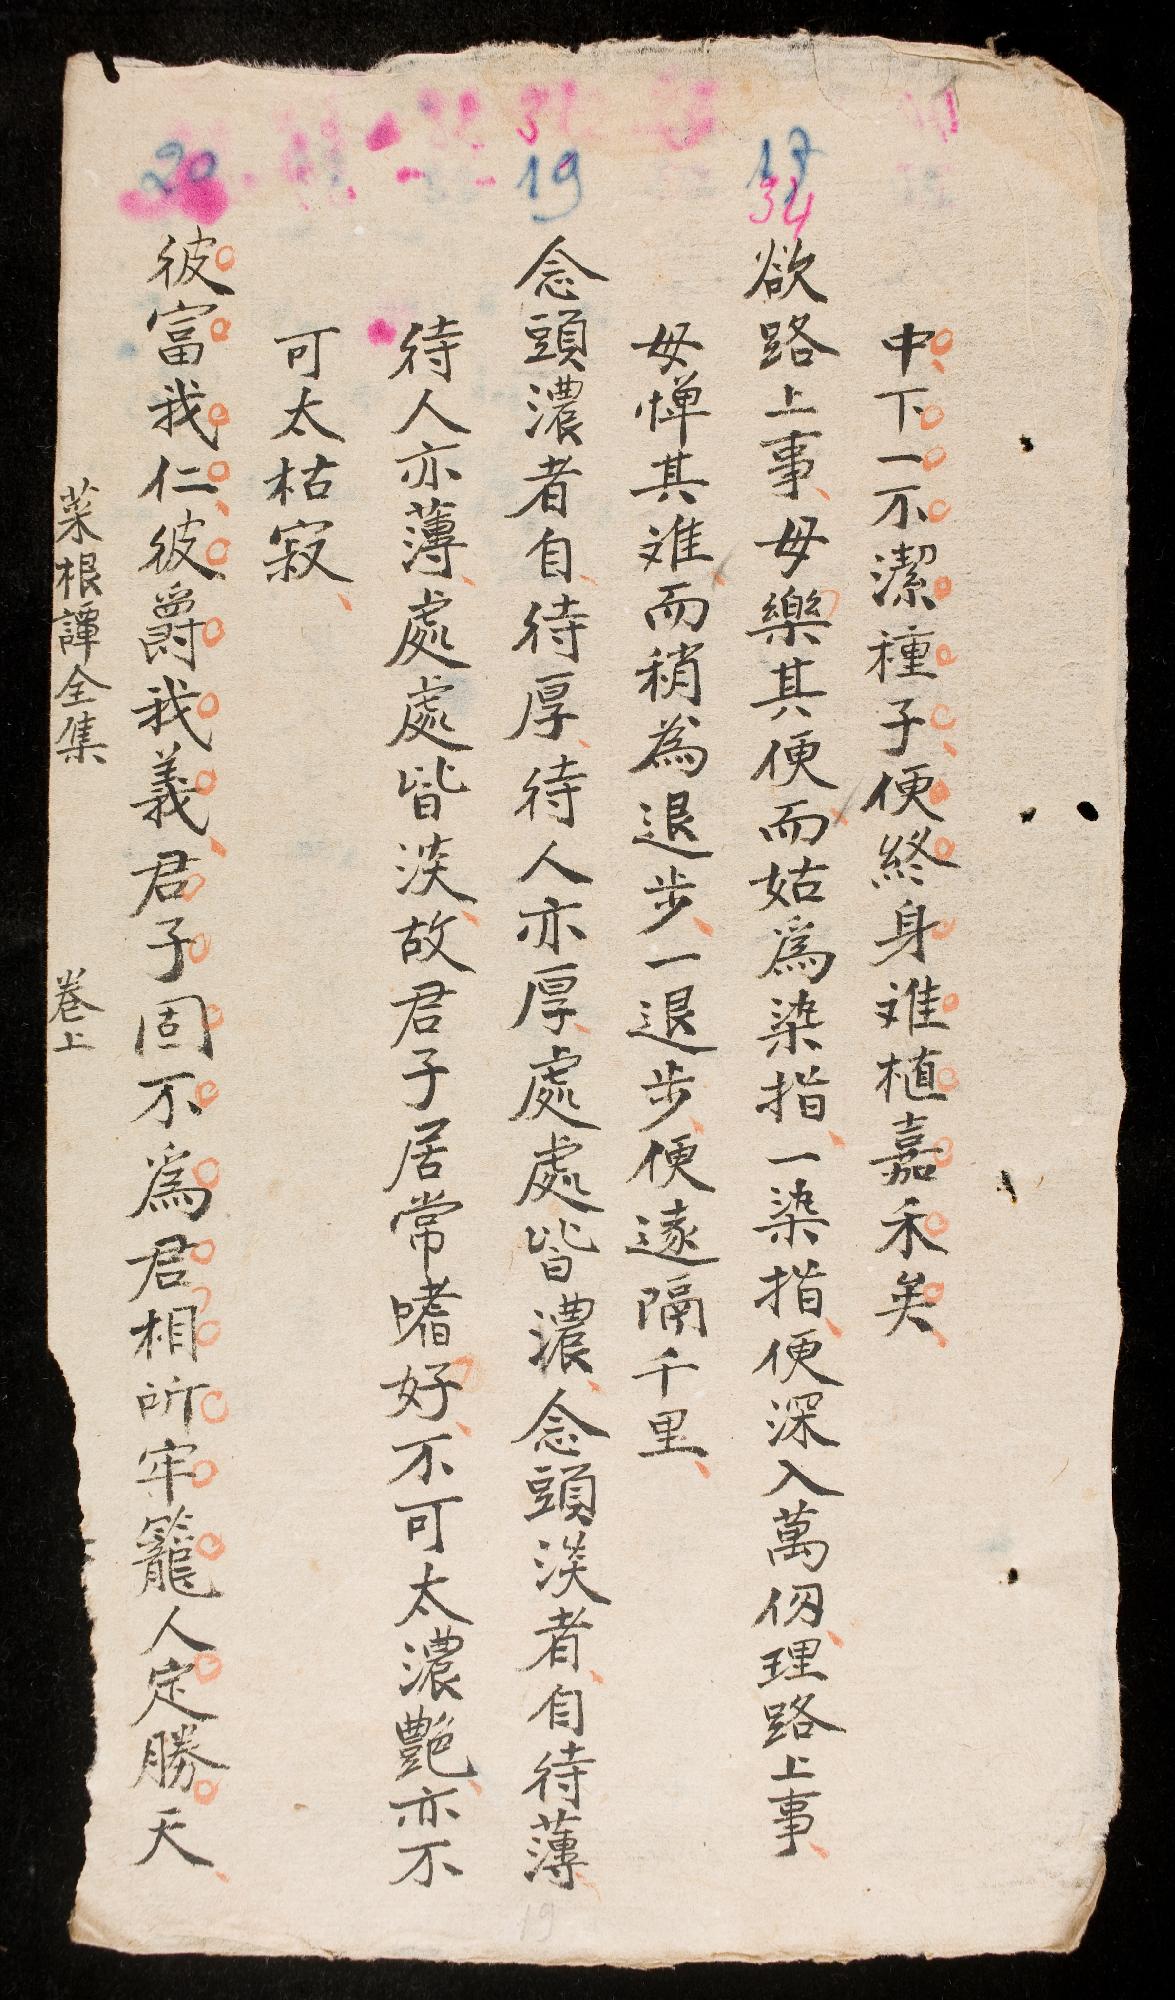 17
34
31
19
20
中下一不潔種子便終身难植嘉禾矣
欲路上事毋樂其便而姑爲染指一染指便深入萬仞理路上事
毋憚其难而稍為退步一退步便遠隔千里
念頭濃者自待厚待人亦厚處處皆濃念頭淡者自待薄
待人亦薄處處皆淡故君子居常嗜好不可太濃艷亦不
可太枯寂
彼富我仁彼爵我義君子固不爲君相所牢籠人定勝天
菜根譚全集 卷上
19